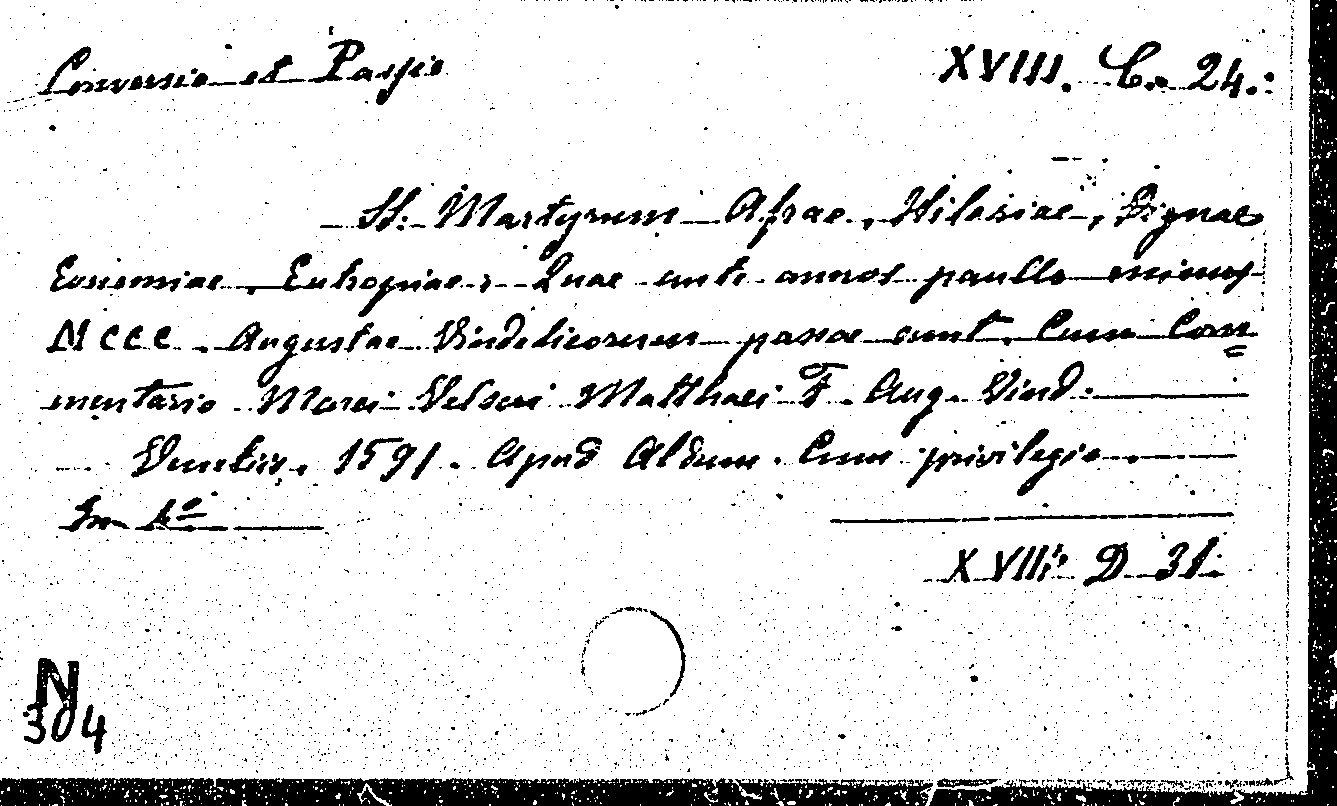 Conversio et Passio XVIII. C. 24.
SS. Martyrum Afrae, Hilariae, Dignae
Eunomiae, Eutropiae, Quae ante annos paullo minus
MCCC. Augustae Vindelicorum passae sunt. Cum Com=
mentario Marci Velseri Matthaei F. Aug. Vind.
Venetiis, 1591. Apud Aldum. Cum privilegio.
In 4º
XVIII. D 31.
N
304